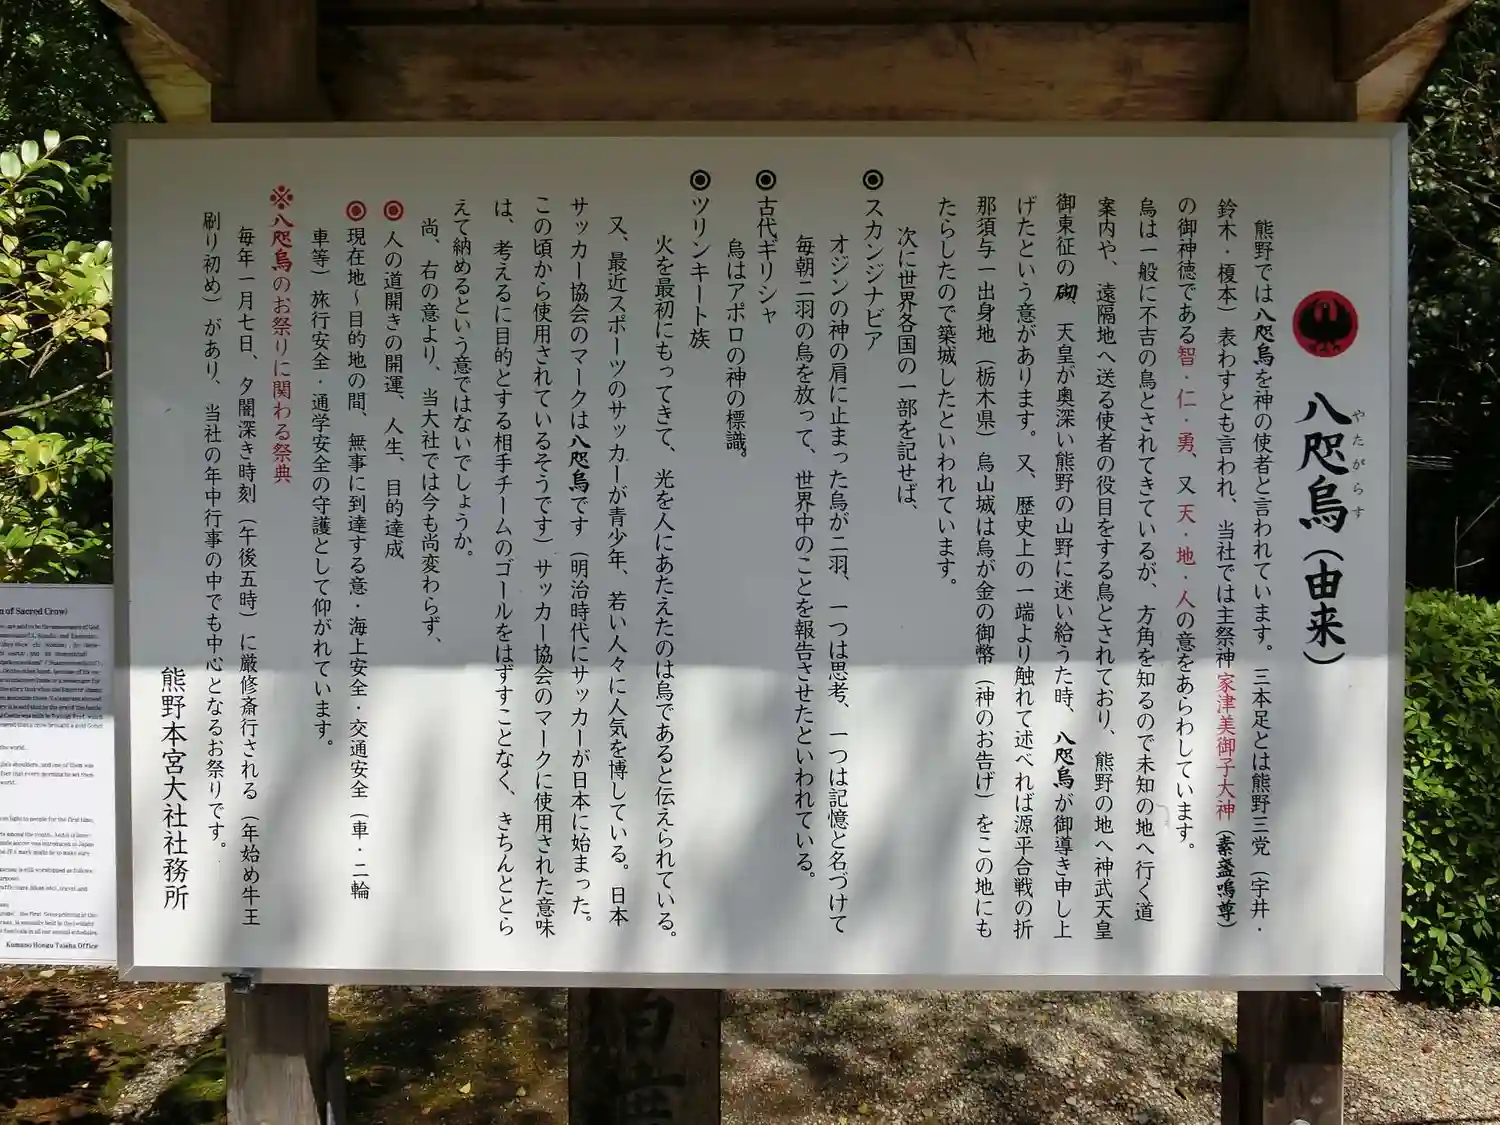 八咫烏（由来）
やたがらす
熊野では八咫烏を神の使者と言われています。三本足とは熊野三党（宇井・
鈴木・榎本）表わすとも言われ、当社では主祭神家津美御子大神（素盞嗚尊）
の御神徳である智・仁・勇、又天・地・人の意をあらわしています。
烏は一般に不吉の鳥とされてきているが、方角を知るので未知の地へ行く道
案内や、遠隔地へ送る使者の役目をする鳥とされており、熊野の地へ神武天皇
御東征の砌　天皇が奥深い熊野の山野に迷い給うた時、八咫烏が御導き申し上
げたという意があります。又、歴史上の一端より触れて述べれば源平合戦の折
那須与一出身地（栃木県）烏山城は烏が金の御幣（神のお告げ）をこの地にも
たらしたので築城したといわれています。
次に世界各国の一部を記せば、
◉スカンジナビア
オジンの神の肩に止まった烏が二羽、一つは思考、一つは記憶と名づけて
毎朝二羽の烏を放って、世界中のことを報告させたといわれている。
◉古代ギリシャ
烏はアポロの神の標識。
◉ツリンキート族
火を最初にもってきて、光を人にあたえたのは烏であると伝えられている。
又、最近スポーツのサッカーが青少年、若い人々に人気を博している。日本
サッカー協会のマークは八咫烏です（明治時代にサッカーが日本に始まった。
この頃から使用されているそうです）サッカー協会のマークに使用された意味
は、考えるに目的とする相手チームのゴールをはずすことなく、きちんととら
えて納めるという意ではないでしょうか。
尚、右の意より、当大社では今も尚変わらず、
◉人の道開きの開運、人生、目的達成
◉現在地〜目的地の間、無事に到達する意・海上安全・交通安全（車・二輪
車等）旅行安全・通学安全の守護として仰がれています。
※八咫烏のお祭りに関わる祭典
毎年一月七日、夕闇深き時刻（午後五時）に厳修斎行される（年始め牛王
刷り初め）があり、当社の年中行事の中でも中心となるお祭りです。
熊野本宮大社社務所
n of Sacred Crow)
the world.
Kumano Hongu Taisha Office